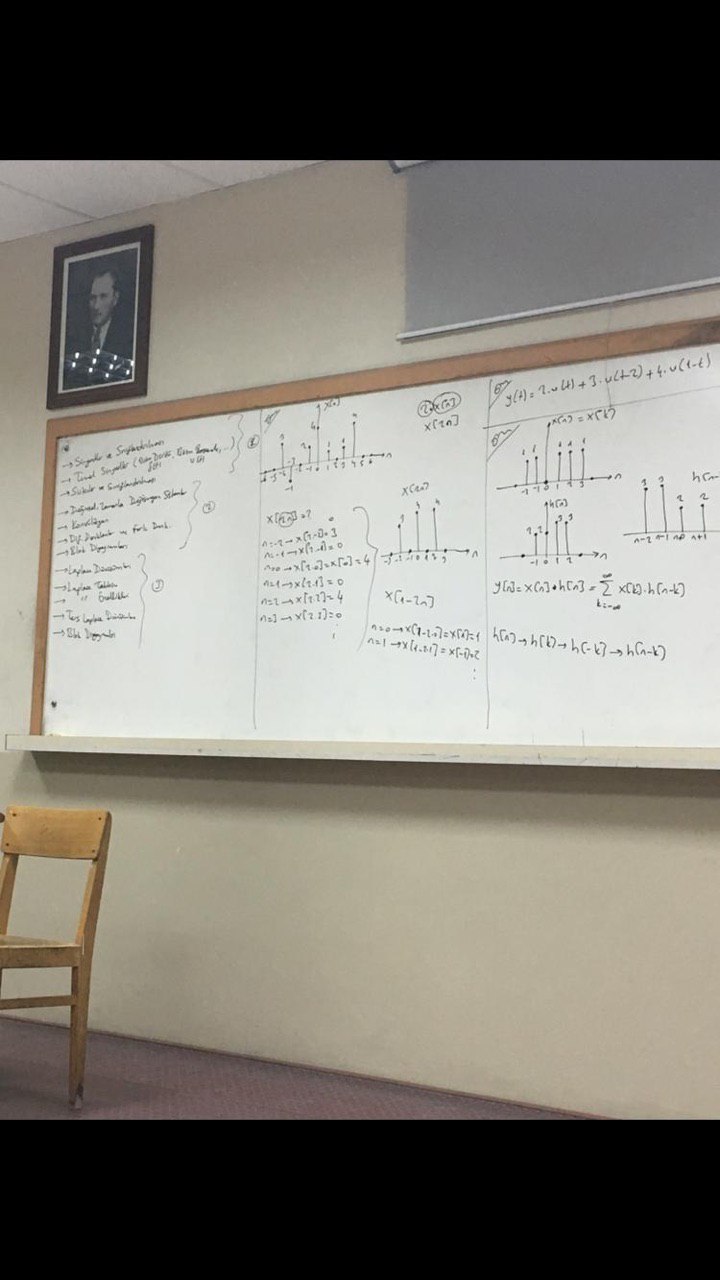 → Sinyaller ve Sınıflandırılması
→ Temel Sinyaller (Birim Darbe, Birim Basamak, ...)
δ(t) u(t)
→ Sistemler ve Sınıflandırılması
→ Doğrusal Zamanla Değişmeyen Sistemler
→ Konvolüsyon
→ Dif. Denklemler ve Fark Denk.
→ Blok Diyagramları
→ Laplace Dönüşümleri
→ Laplace Tablosu
→ " Özellikleri
→ Ters Laplace Dönüşümleri
→ Blok Diyagramları
1
2
3
x[n]
2.x[n]
x[2n]
x[2n]=?
n=-2 → x[2.-2]=3
n=-1 → x[2.-1]=0
n=0 → x[2.0]=x[0]=4
n=1 → x[2.1]=0
n=2 → x[2.2]=4
n=3 → x[2.3]=0
x[2n]
x[1-2n]
n=0 → x[1-2.0]=x[1]=1
n=1 → x[1-2.1]=x[-1]=2
y(t)=2.u(t)+3.u(t-2)+4.u(1-t)
x[n]=x[k]
h[n]
n-2 n-1 n n+1
y[n]=x[n]*h[n]=∑ x[k].h[n-k]
k=-∞
h[n]→h[k]→h[-k]→h[n-k]